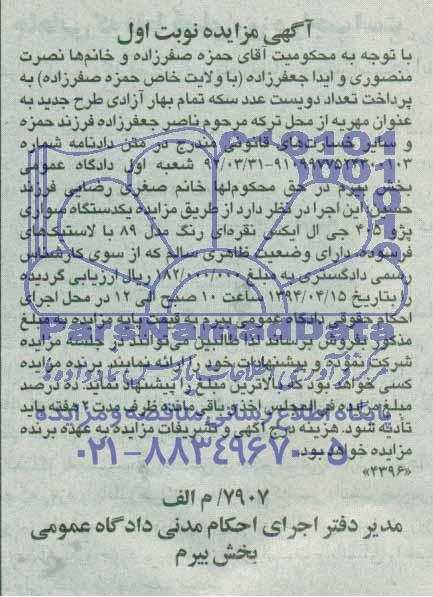 آگهی مزایده نوبت اول
با توجه به محکومیت آقای حمزه صفرزاده و خانم‌ها نصرت
منصوری و ایدا جعفرزاده (با ولایت خاص حمزه صفرزاده) به
پرداخت تعداد دویست عدد سکه تمام بهار آزادی طرح جدید به
عنوان مهریه از محل ترکه مرحوم ناصر جعفرزاده فرزند حمزه
و سایر خسارت‌های قانونی مندرج در متن دادنامه شماره
شعبه اول دادگاه عمومی
بخش بیرم در حق محکوم‌لها خانم صغری رضایی فرزند
حسین، این اجرا در نظر دارد از طریق مزایده یکدستگاه سواری
پژو ۴۰۵ جی ال ایکس نقره‌ای رنگ مدل ۸۹ با لاستیک‌های
فرسوده، دارای وضعیت ظاهری سالم که از سوی کارشناس
رسمی دادگستری به مبلغ ۱۸۲/۰۰۰/۰۰۰ ریال ارزیابی گردیده
را بتاریخ ۱۳۹۴/۰۴/۱۵ ساعت ۱۰ صبح الی ۱۲ در محل اجرای
احکام حقوقی دادگاه عمومی بیرم به قیمت پایه مزایده به مبلغ
مذکور بفروش برساند لذا طالبین می‌توانند در جلسه مزایده
شرکت نموده و پیشنهادات خود را ارائه نمایند برنده مزایده
کسی خواهد بود که بالاترین مبلغ را پیشنهاد نماید ده درصد
مبلغ مزایده فی‌المجلس اخذ و باقی مانده ظرف مدت هفته باید
تأدیه شود. هزینه درج آگهی و تشریفات مزایده به عهده برنده
مزایده خواهد بود.
«۴۳۹۶»
۷۹۰۷/ م الف
مدیر دفتر اجرای احکام مدنی دادگاه عمومی
بخش بیرم
ParsNamadData
پایگاه اطلاع رسانی مناقصه و مزایده
۰۲۱-۸۸۳۴۹۶۷۰-۵